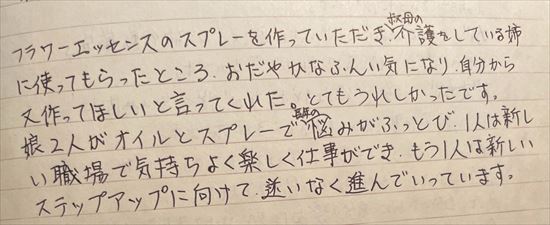 フラワーエッセンスのスプレーを作っていただき、叔母の介護をしている姉
に使ってもらったところ、おだやかなふんい気になり、自分から
又作ってほしいと言ってくれた。とてもうれしかったです。
娘2人がオイルとスプレーで長年の悩みがふっとび、1人は新し
い職場で気持ちよく楽しく仕事ができ、もう1人は新しい
ステップアップに向けて、迷いなく進んでいっています。